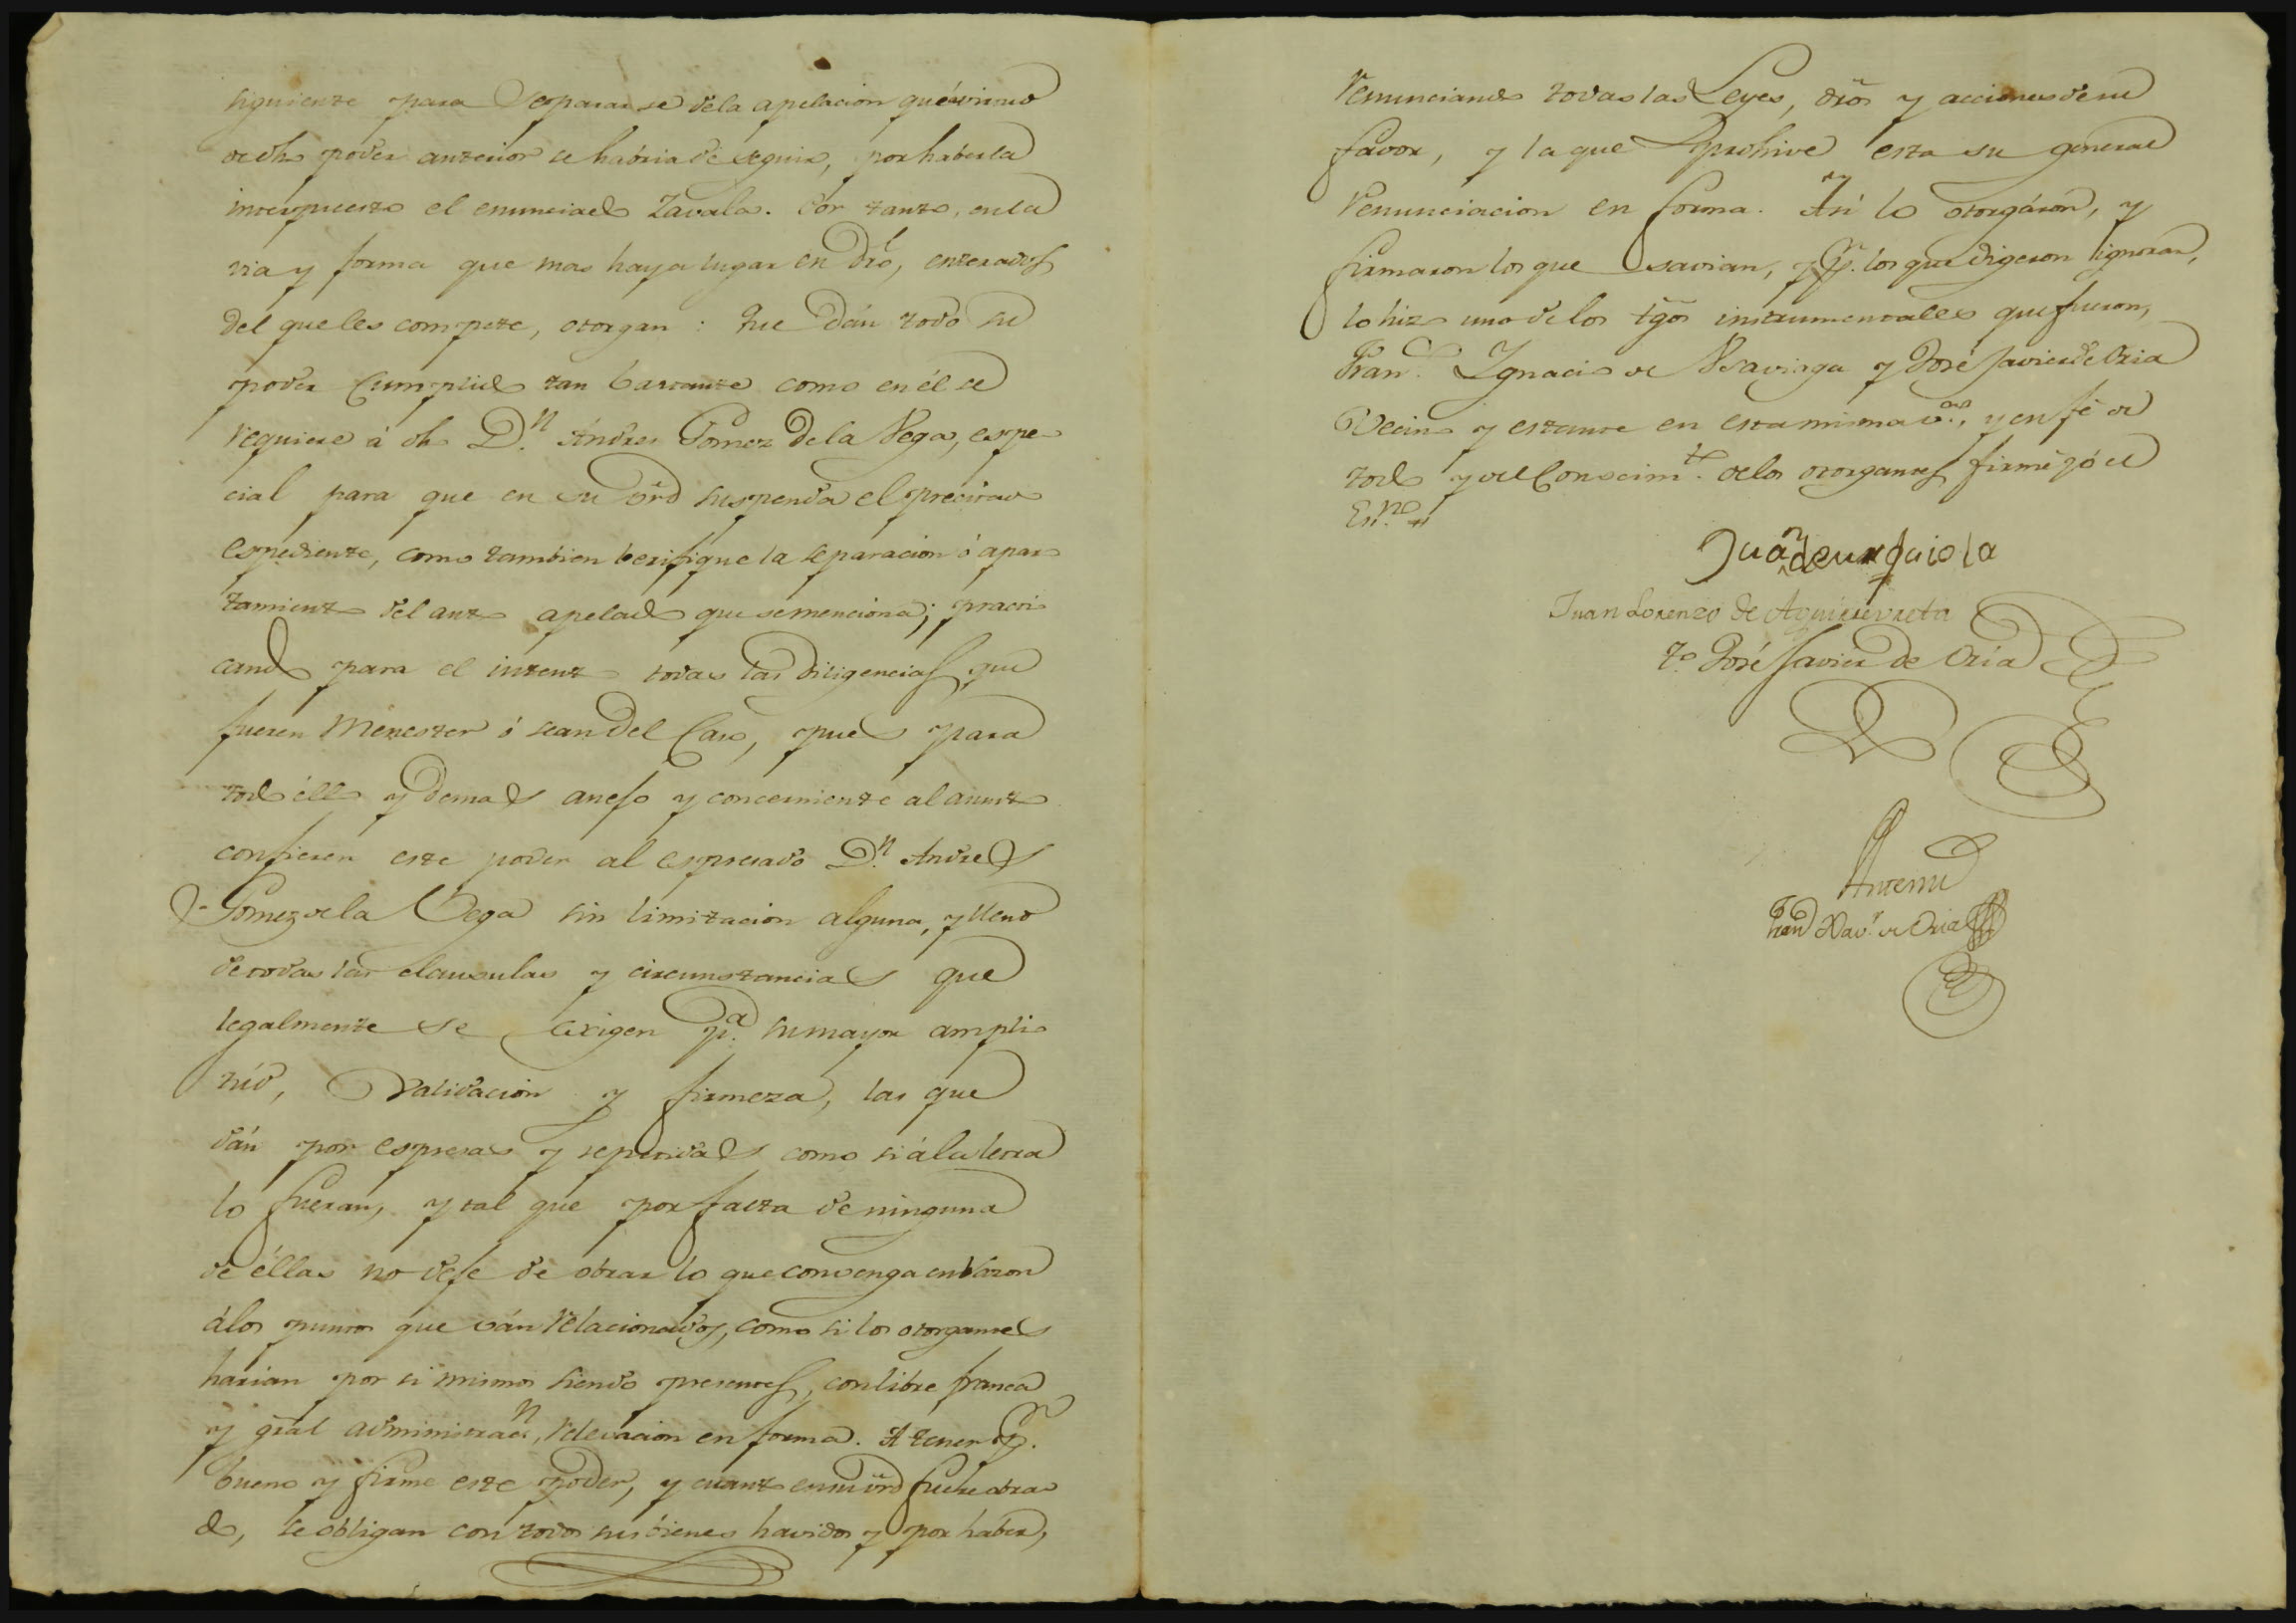 siguiente para separarse dela apelacion que en virtud
de dho poder anterior se habria de seguir, por haberla
interpuesto el enunciado Zavala. Por tanto, en la
via y forma que mas haya lugar en dro, enterados
del que les compete, otorgan: Que dán todo su
poder Cumplido tan bastante como en él se
requiere á dho Dn. Andres Gomez de la Vega, espe-
cial para que en su vrd suspenda el precitado
espediente, como tambien berifique la separacion ó apar-
tamiento del auto apelado que se menciona; practi-
cando para el intento todas las diligencias que
fueren menester ó sean del Caso, pues para
todo éllo y demas anejo y concerniente al asunto
confieren este poder al espresado Dn. Andres
Gomez de la Vega sin limitacion alguna, y lleno
de todas las clausulas y circunstancias que
legalmente se exigen pa. su mayor ampli-
túd, validacion y firmeza, las que
dán por espresas y repetidas como si á la letra
lo fueran, y tal que por falta de ninguna
de éllas no deje de obrar lo que convenga en razon
á los puntos que ván relacionados, como si los otorgantes
harian por si mismos siendo presentes, con libre franca
y gral administracn, relevacion en forma. A tener p.
bueno y firme este poder, y cuanto en su vrd fuere obra-
do, se obligan con todos sus bienes havidos y por haber,
renunciando todas las Leyes, dros y acciones de su
favor, y la que prohive esta su general
renunciacion en forma. Asi lo otorgáron, y
firmaron los que savian, y p. los que digeron ignorar,
lo hizo uno de los tgos instrumentales que fueron,
Fran. Ignacio de y José Javier de Oria
Vecino y estante en esta misma va., y en fé de
todo y del Conocimto. de los otorgantes firmé yó el
Esno.
Juan de urquiola
Juan Lorenzo de Aguirreurreta
To. José Javier de Oria
Antemi
Juan Xavr. de Oria